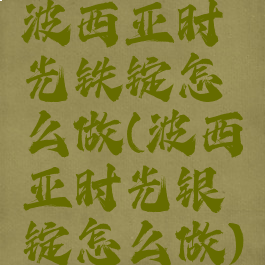 波西亚时
光铁锭怎
么做(波西
亚时光银
锭怎么做)